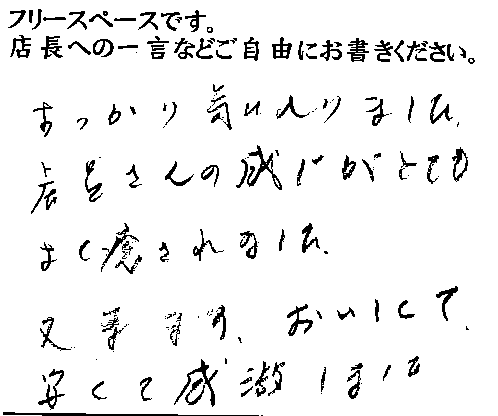 フリースペースです。
店長への一言などご自由にお書きください。
すっかり気に入りました。
店長さんの感じがとても
よく癒されました。
又来ます。おいしくて、
安くて感激しました